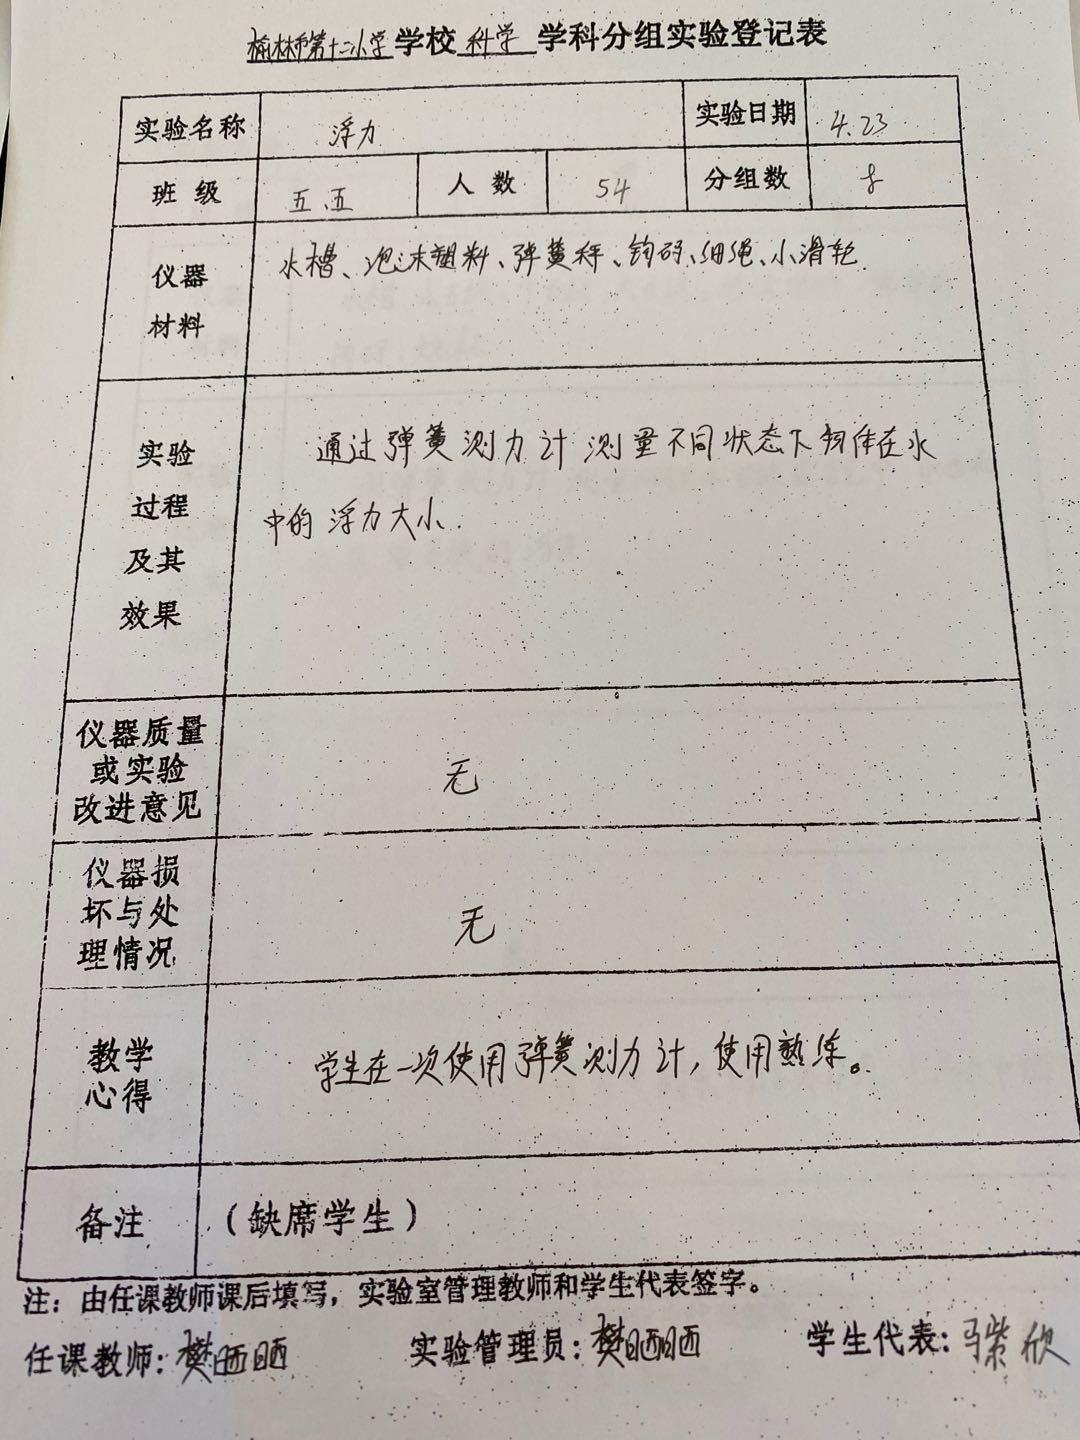 榆林市第十二小学学校 科学 学科分组实验登记表
实验名称 浮力 实验日期 4.23
班级 五.五 人数 54 分组数 8
仪器材料 水槽、泡沫塑料、弹簧秤、钩码、细绳、小滑轮.
实验过程及其效果 通过弹簧测力计测量不同状态下物体在水
中的浮力大小.
仪器质量或实验改进意见 无
仪器损坏与处理情况 无
教学心得 学生在一次使用弹簧测力计,使用熟练。
备注 (缺席学生)
注:由任课教师课后填写,实验室管理教师和学生代表签字。
任课教师:樊晒晒 实验管理员:樊晒晒 学生代表:紫欣